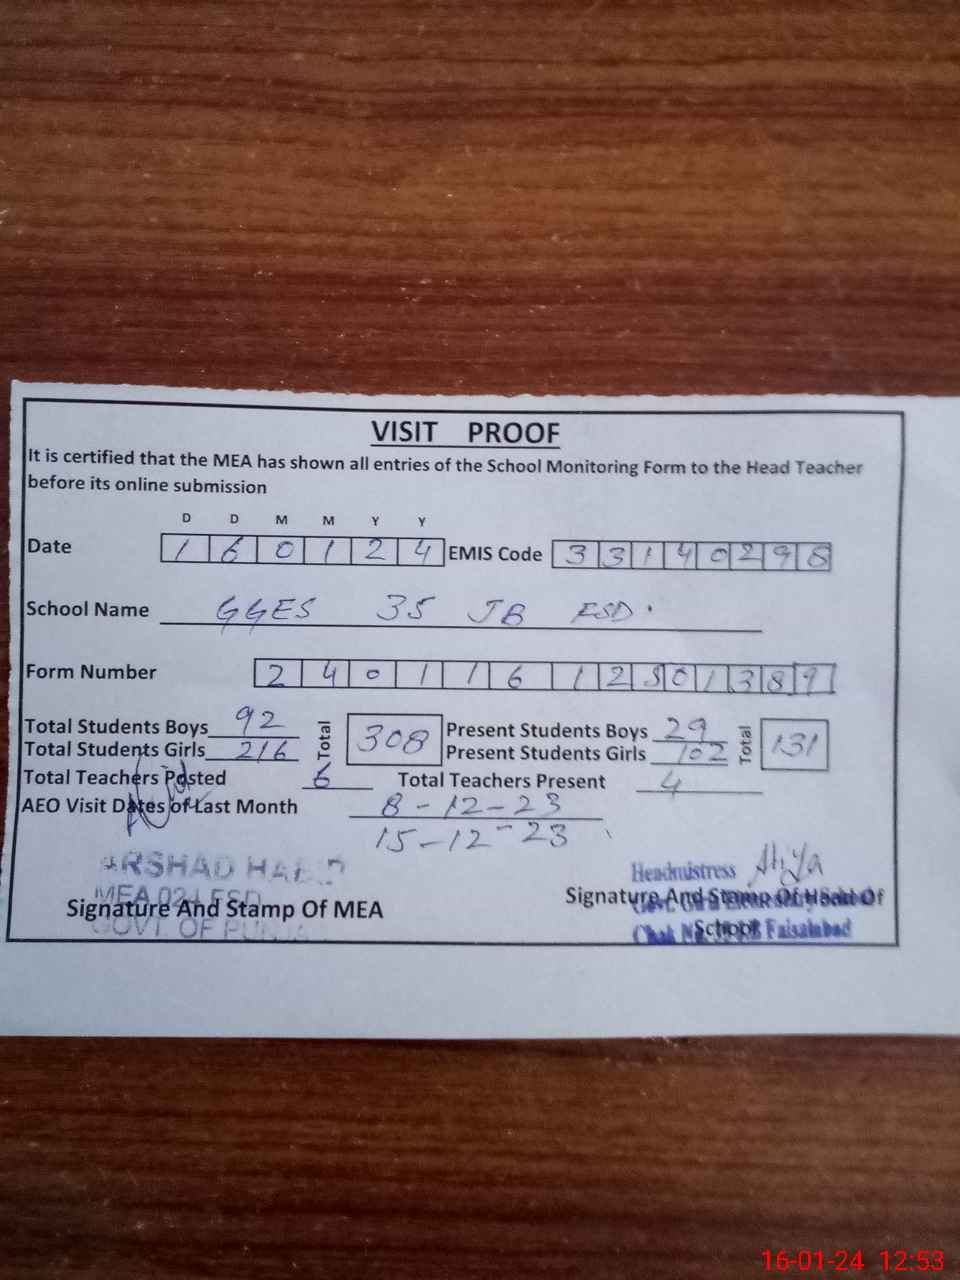 VISIT PROOF
It is certified that the MEA has shown all entries of the School Monitoring Form to the Head Teacher
before its online submission
D D M M Y Y
Date 1 6 0 1 2 4 EMIS Code 3 3 1 4 0 2 9 8
School Name GGES 35 JB FSD.
Form Number 2 4 0 1 1 6 1 2 5 0 1 3 8 9
Total Students Boys 92 Total 308 Present Students Boys 29 Total 131
Total Students Girls 216 Present Students Girls 102
Total Teachers Posted 6 Total Teachers Present 4
AEO Visit Dates of Last Month 8-12-23
15-12-23
ARSHAD
MEA 024 FSD
GOVT. OF
Signature And Stamp Of MEA
Headmistress Atiya
Signature And Stamp Of Head Of
School
Chak Faisalabad
16-01-24 12:53